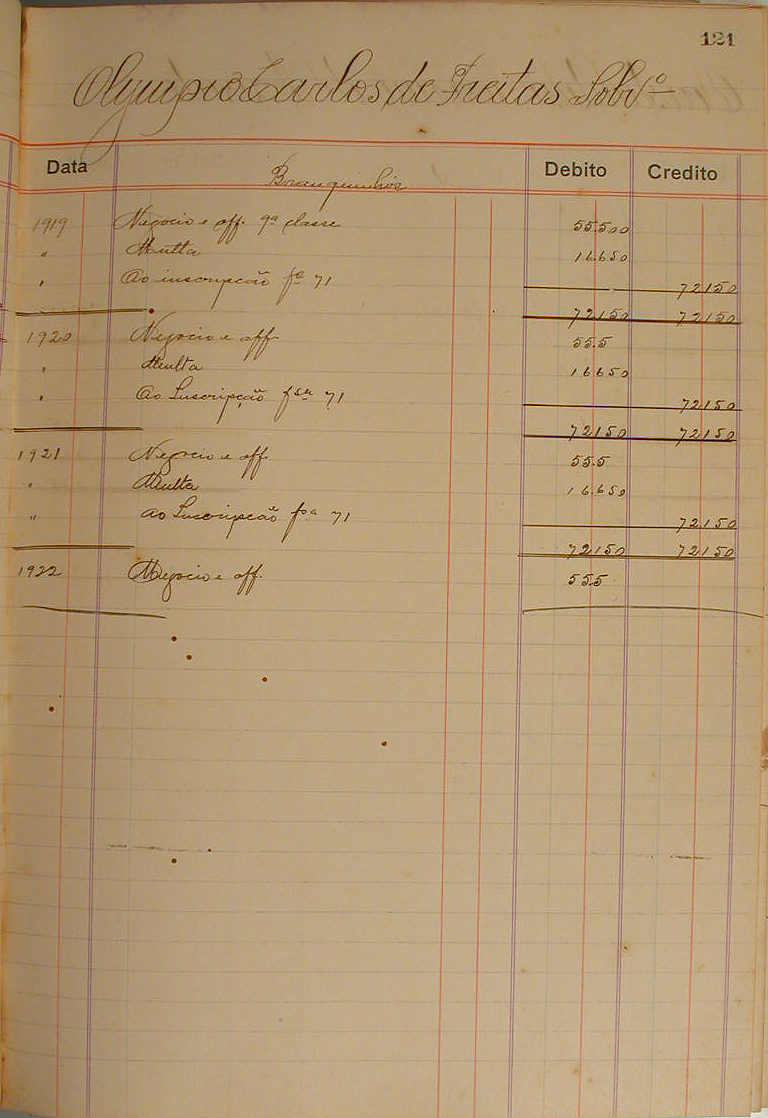 121
Olympio Carlos de Freitas Sobr.º
Data Debito Credito
Branquinhos
1919 Negocio e off. 9ª classe 55.500
" Multa 16.650
" Ao inscripção fª 71 72150
72150 72150
1920 Negocio e off. 55.5
" Multa 16650
" Ao Inscripção fsª 71 72150
72150 72150
1921 Negocio e off. 55.5
" Multa 16.650
" ao Inscripção fª 71 72150
72150 72150
1922 Negocio e off. 555